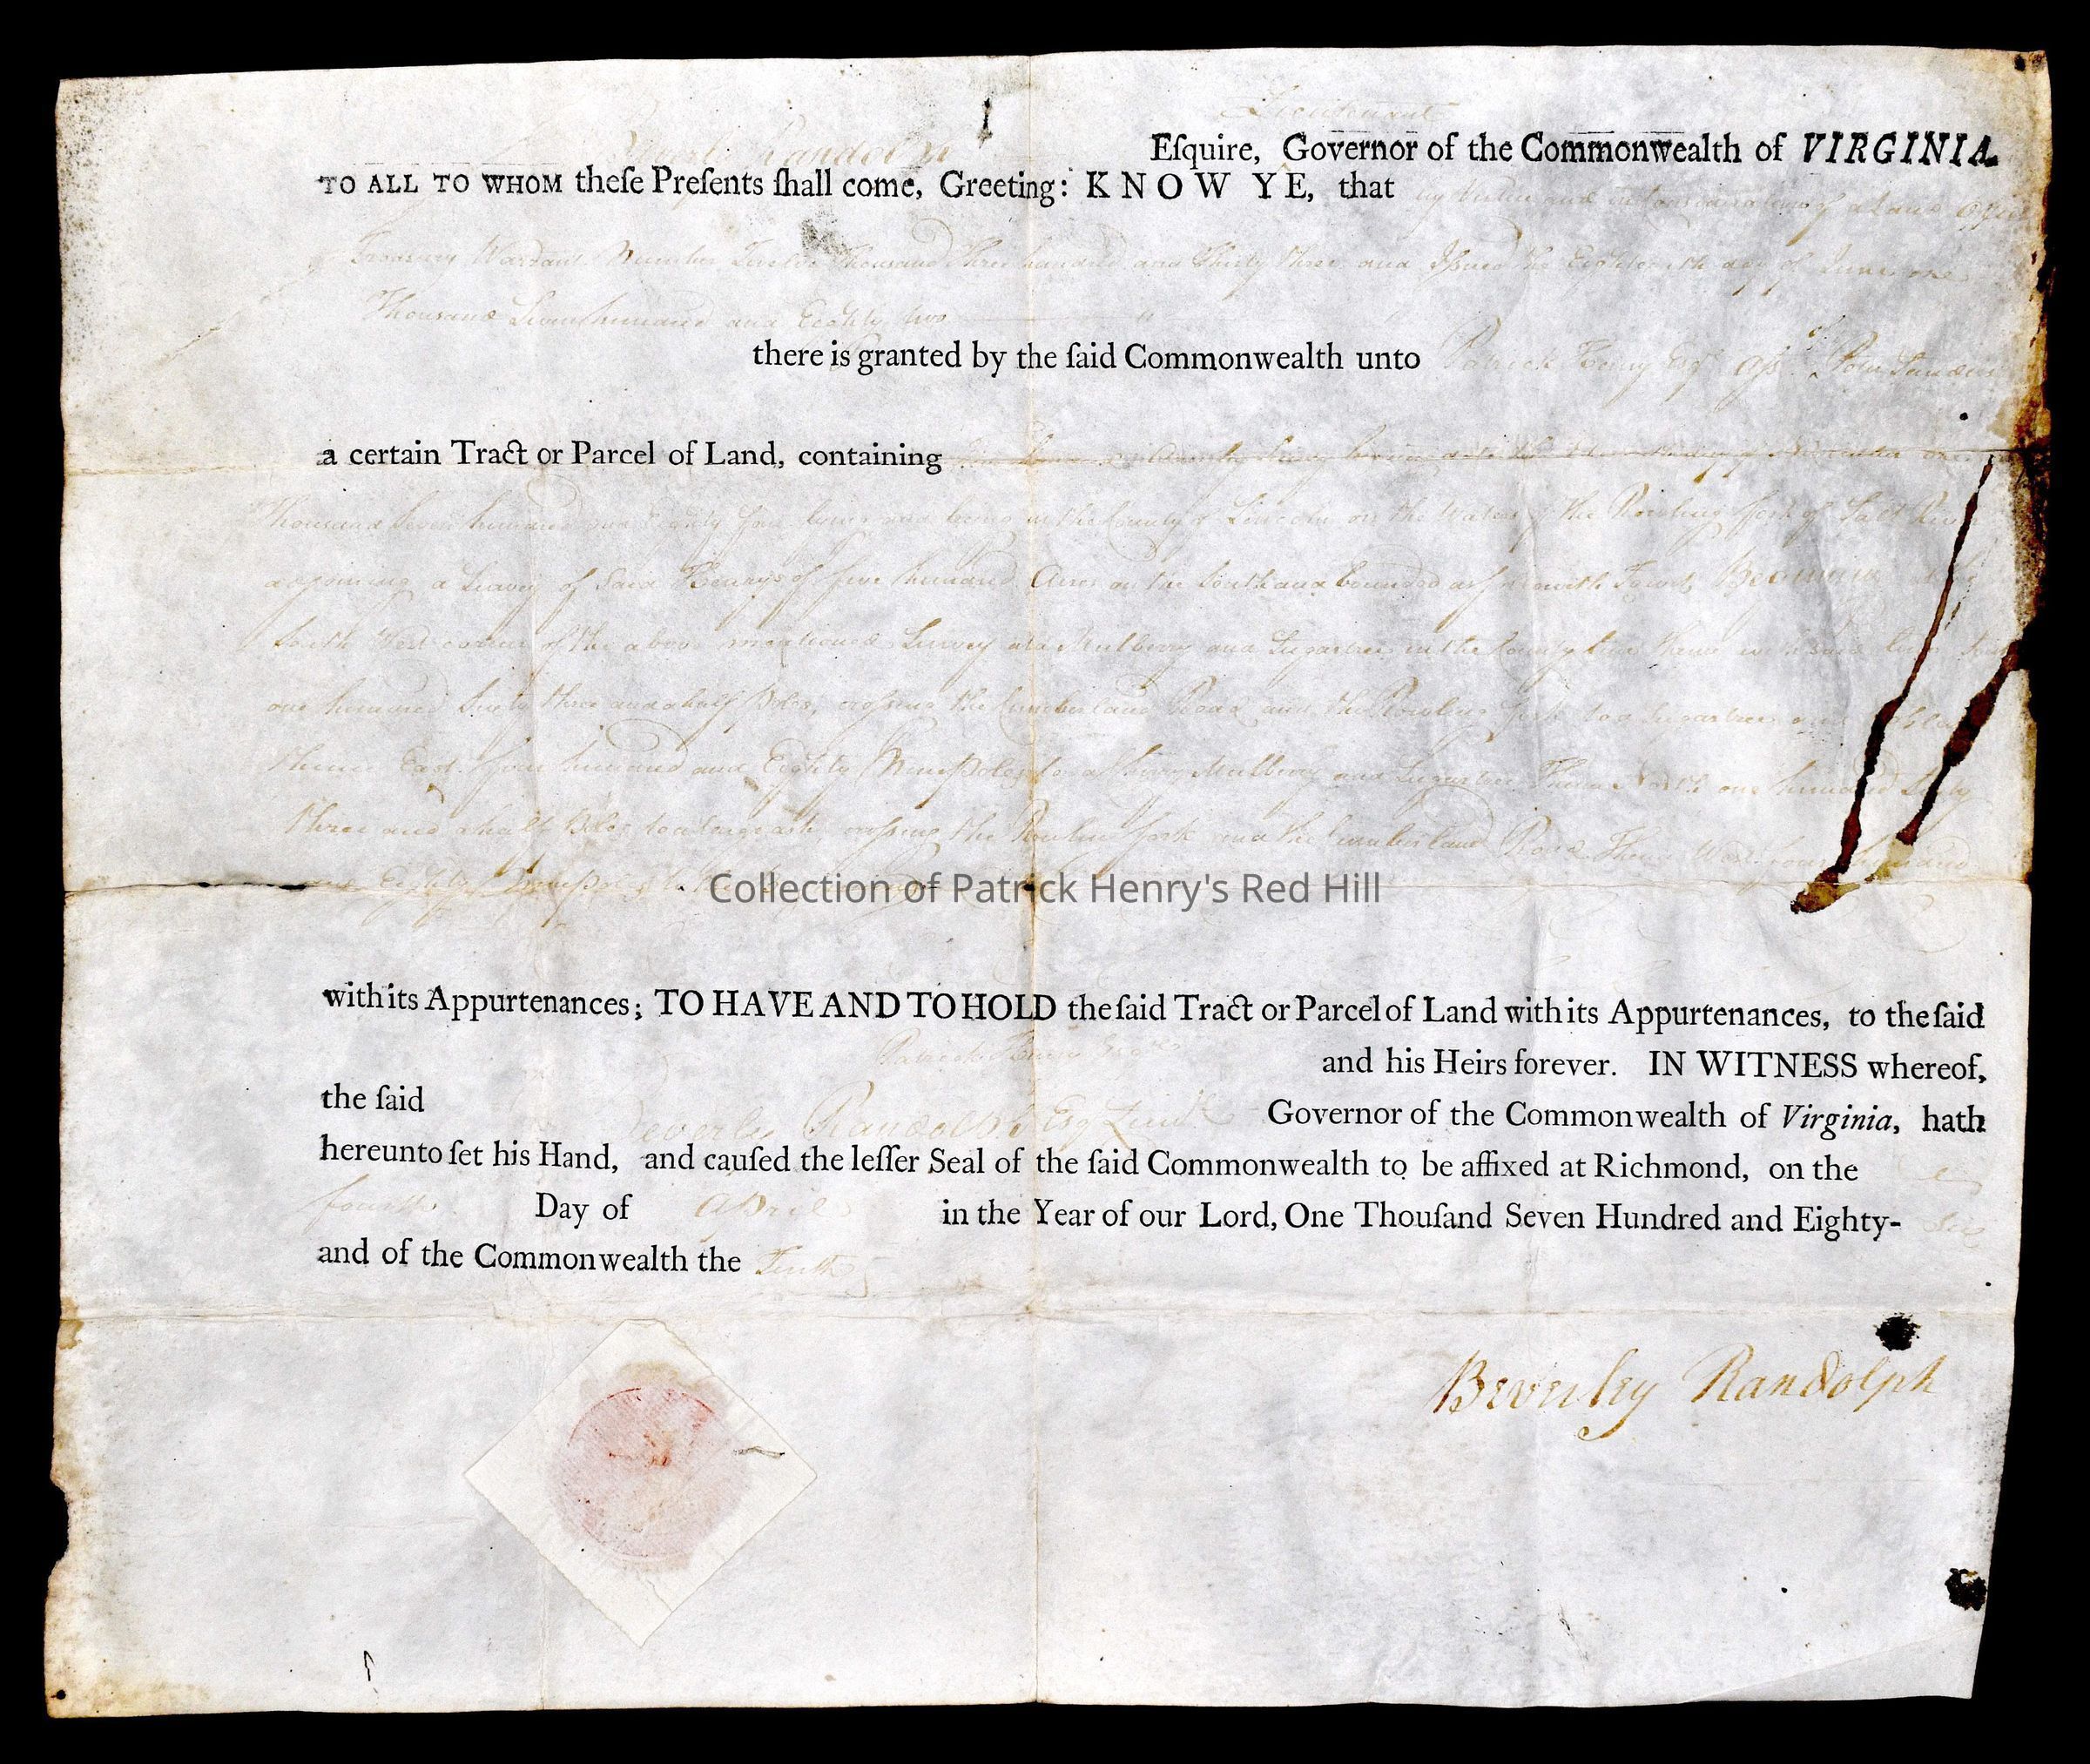 Lieutenant
Beverly Randolph Eſquire, Governor of the Commonwealth of VIRGINIA.
TO ALL TO WHOM theſe Preſents ſhall come, Greeting: KNOW YE, that by Virtue and in Consideration of a Land Office
Treasury Warrant Number Twelve Thousand three hundred and thirty three and Issued the Eighteenth day of June one
Thousand Seven hundred and Eighty two
there is granted by the ſaid Commonwealth unto Patrick Henry Esqr
a certain Tract or Parcel of Land, containing
Thousand Seven hundred and Eighty four lying and being in the County of Lincoln on the Waters of the Rowling fork of Salt River
adjoining a Survey of Said Henry's of five hundred Acres on the South and bounded as
South West corner of the above mentioned Survey at a Mulberry and Sugartree in the County line thence with said line South
one hundred Sixty three and a half Poles, crossing the Cumberland Road and the Rowling fork to a Sugartree and
thence East four hundred and Eighty Nine Poles to a Mulberry and Sugartree Thence North one hundred Sixty
three and a half Poles to a large ash, crossing the Rowling fork and the Cumberland Road Thence West four hundred
and Eighty
Collection of Patrick Henry's Red Hill
with its Appurtenances; TO HAVE AND TO HOLD the ſaid Tract or Parcel of Land with its Appurtenances, to the ſaid
Patrick Henry Esqr and his Heirs forever. IN WITNESS whereof,
the ſaid Beverley Randolph Esq Governor of the Commonwealth of Virginia, hath
hereunto ſet his Hand, and cauſed the leſſer Seal of the ſaid Commonwealth to be affixed at Richmond, on the
fourth Day of April in the Year of our Lord, One Thouſand Seven Hundred and Eighty- Six
and of the Commonwealth the Tenth
Beverley Randolph